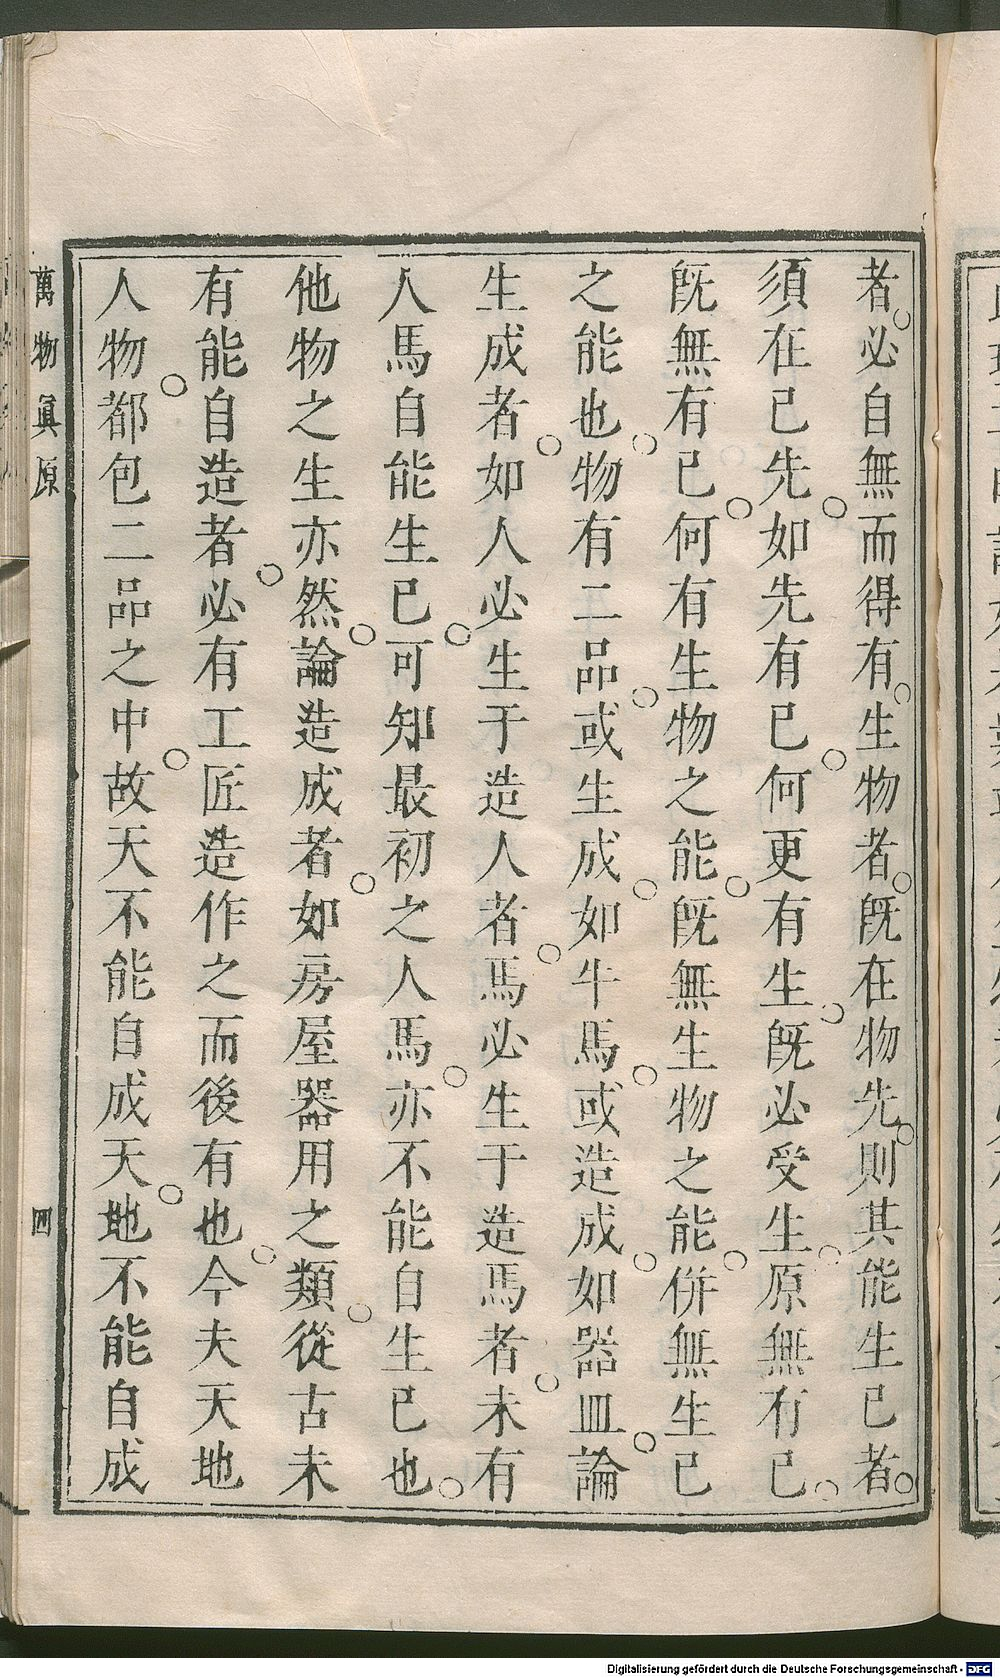 者。必自無而得有。生物者。既在物先。則其能生已者。
須在已先。如先有已。何更有生。既必受生。原無有已。
既無有已。何有生物之能。既無生物之能。併無生已
之能也。物有二品。或生成。如牛馬。或造成。如器皿。論
生成者。如人必生于造人者。馬必生于造馬者。未有
人馬自能生已。可知最初之人馬。亦不能自生已也。
他物之生亦然。論造成者。如房屋器用之類。從古未
有能自造者。必有工匠造作之而後有也。今夫天地
人物。都包二品之中。故天不能自成天。地不能自成
萬物眞原
四
Digitalisierung gefördert durch die Deutsche Forschungsgemeinschaft - DFG